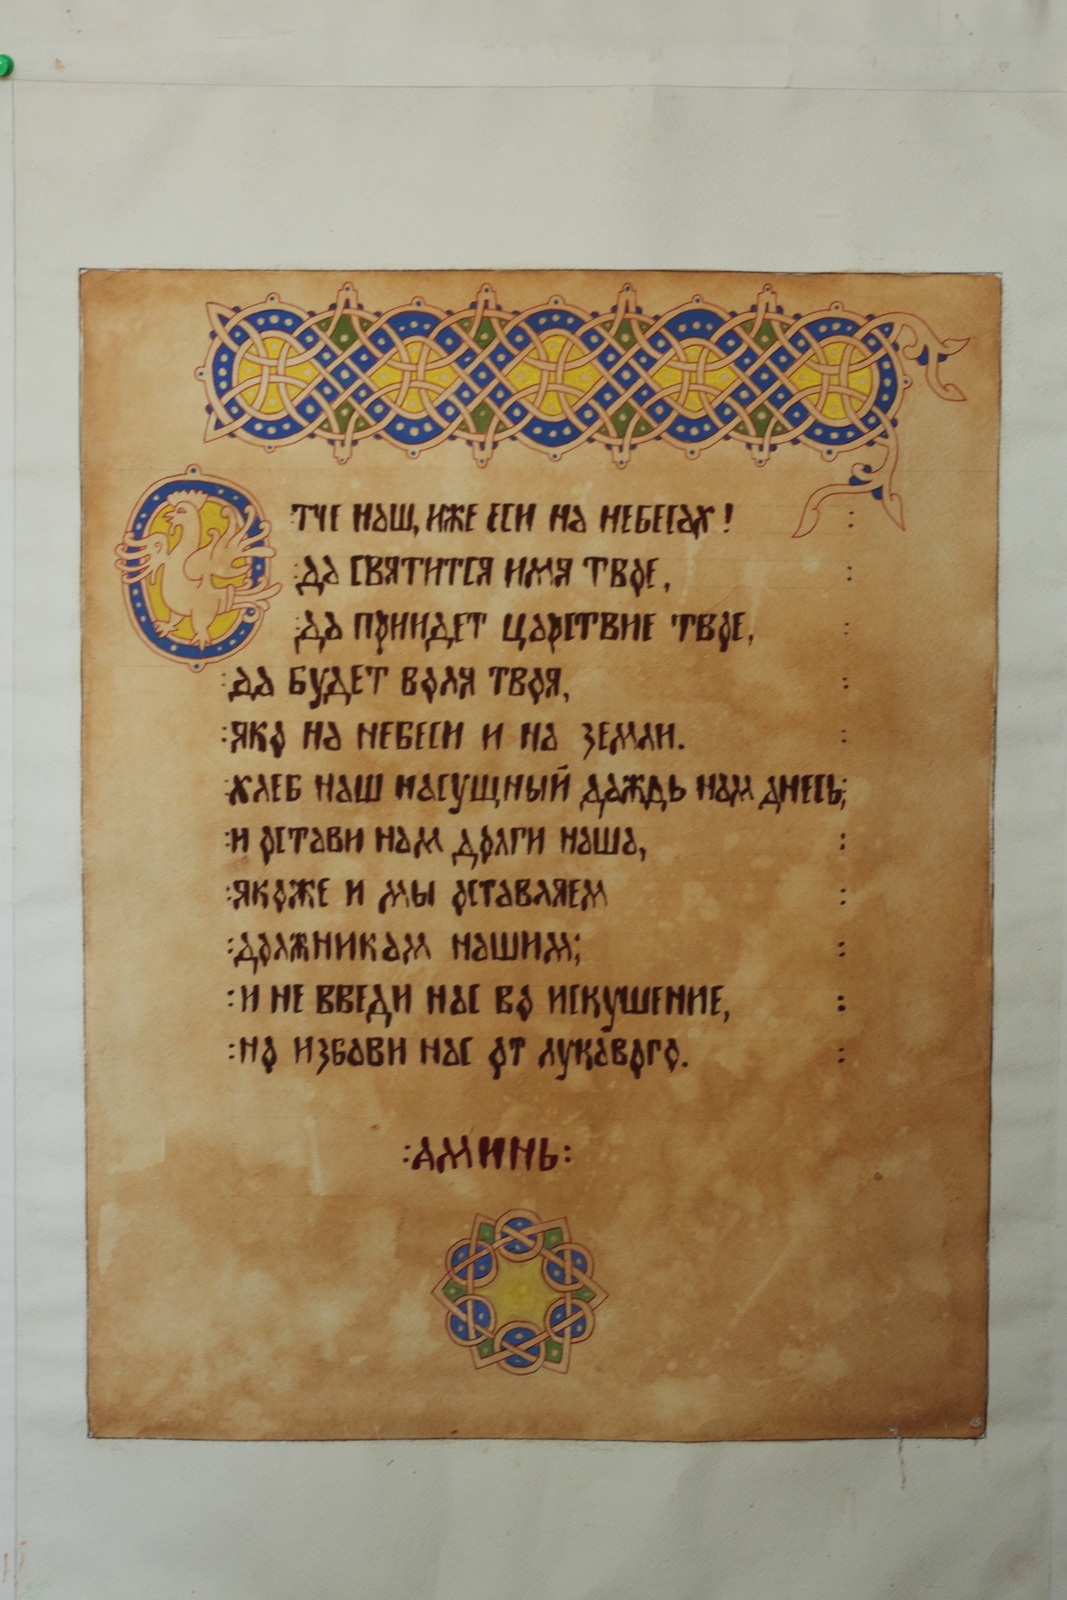 Отче наш, иже еси на небесах! :
:да святится имя твое, :
:да приидет царствие твое, :
:да будет воля твоя, :
:яко на небеси и на земли. :
:хлеб наш насущный даждь нам днесь;
:и остави нам долги наша, :
:якоже и мы оставляем :
:должникам нашим; :
:и не введи нас во искушение, :
:но избави нас от лукаваго. :
:аминь: